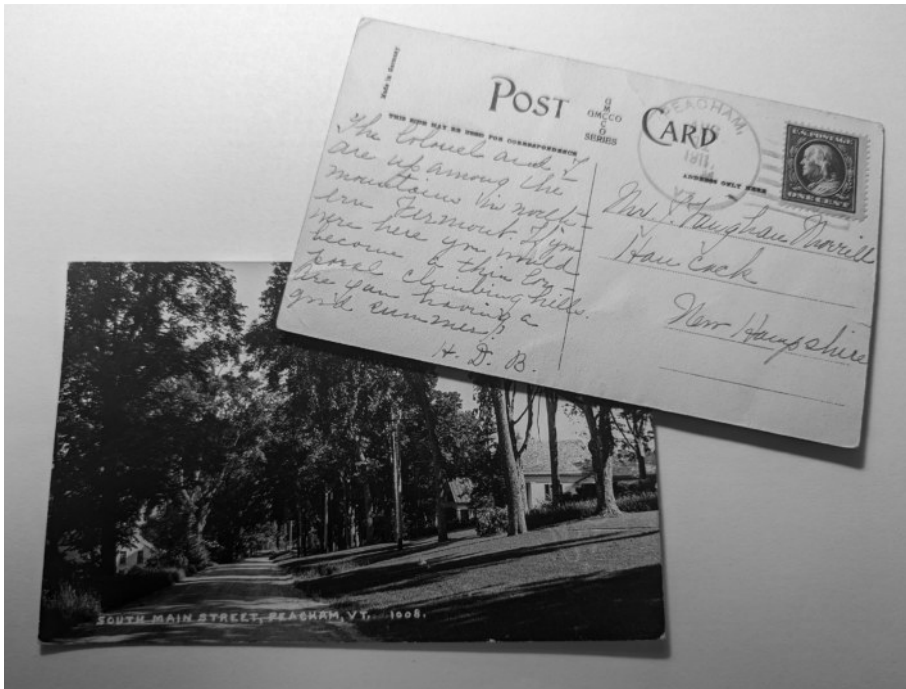 Made in Germany
POST CARD
OMCCO
SERIES
THIS SIDE MAY BE USED FOR CORRESPONDENCE
ADDRESS ONLY HERE
PEACHAM,
1911
VT.
U.S. POSTAGE
ONE CENT
The Colonel and I
are up among the
mountains in north-
ern Vermont. If you
were here you would
become a thin Cor-
poral climbing hills.
Are you having a
good summer?
H. D. B.
J. Vaughan Morrill
Hancock
New Hampshire
SOUTH MAIN STREET, PEACHAM, VT. 1008.